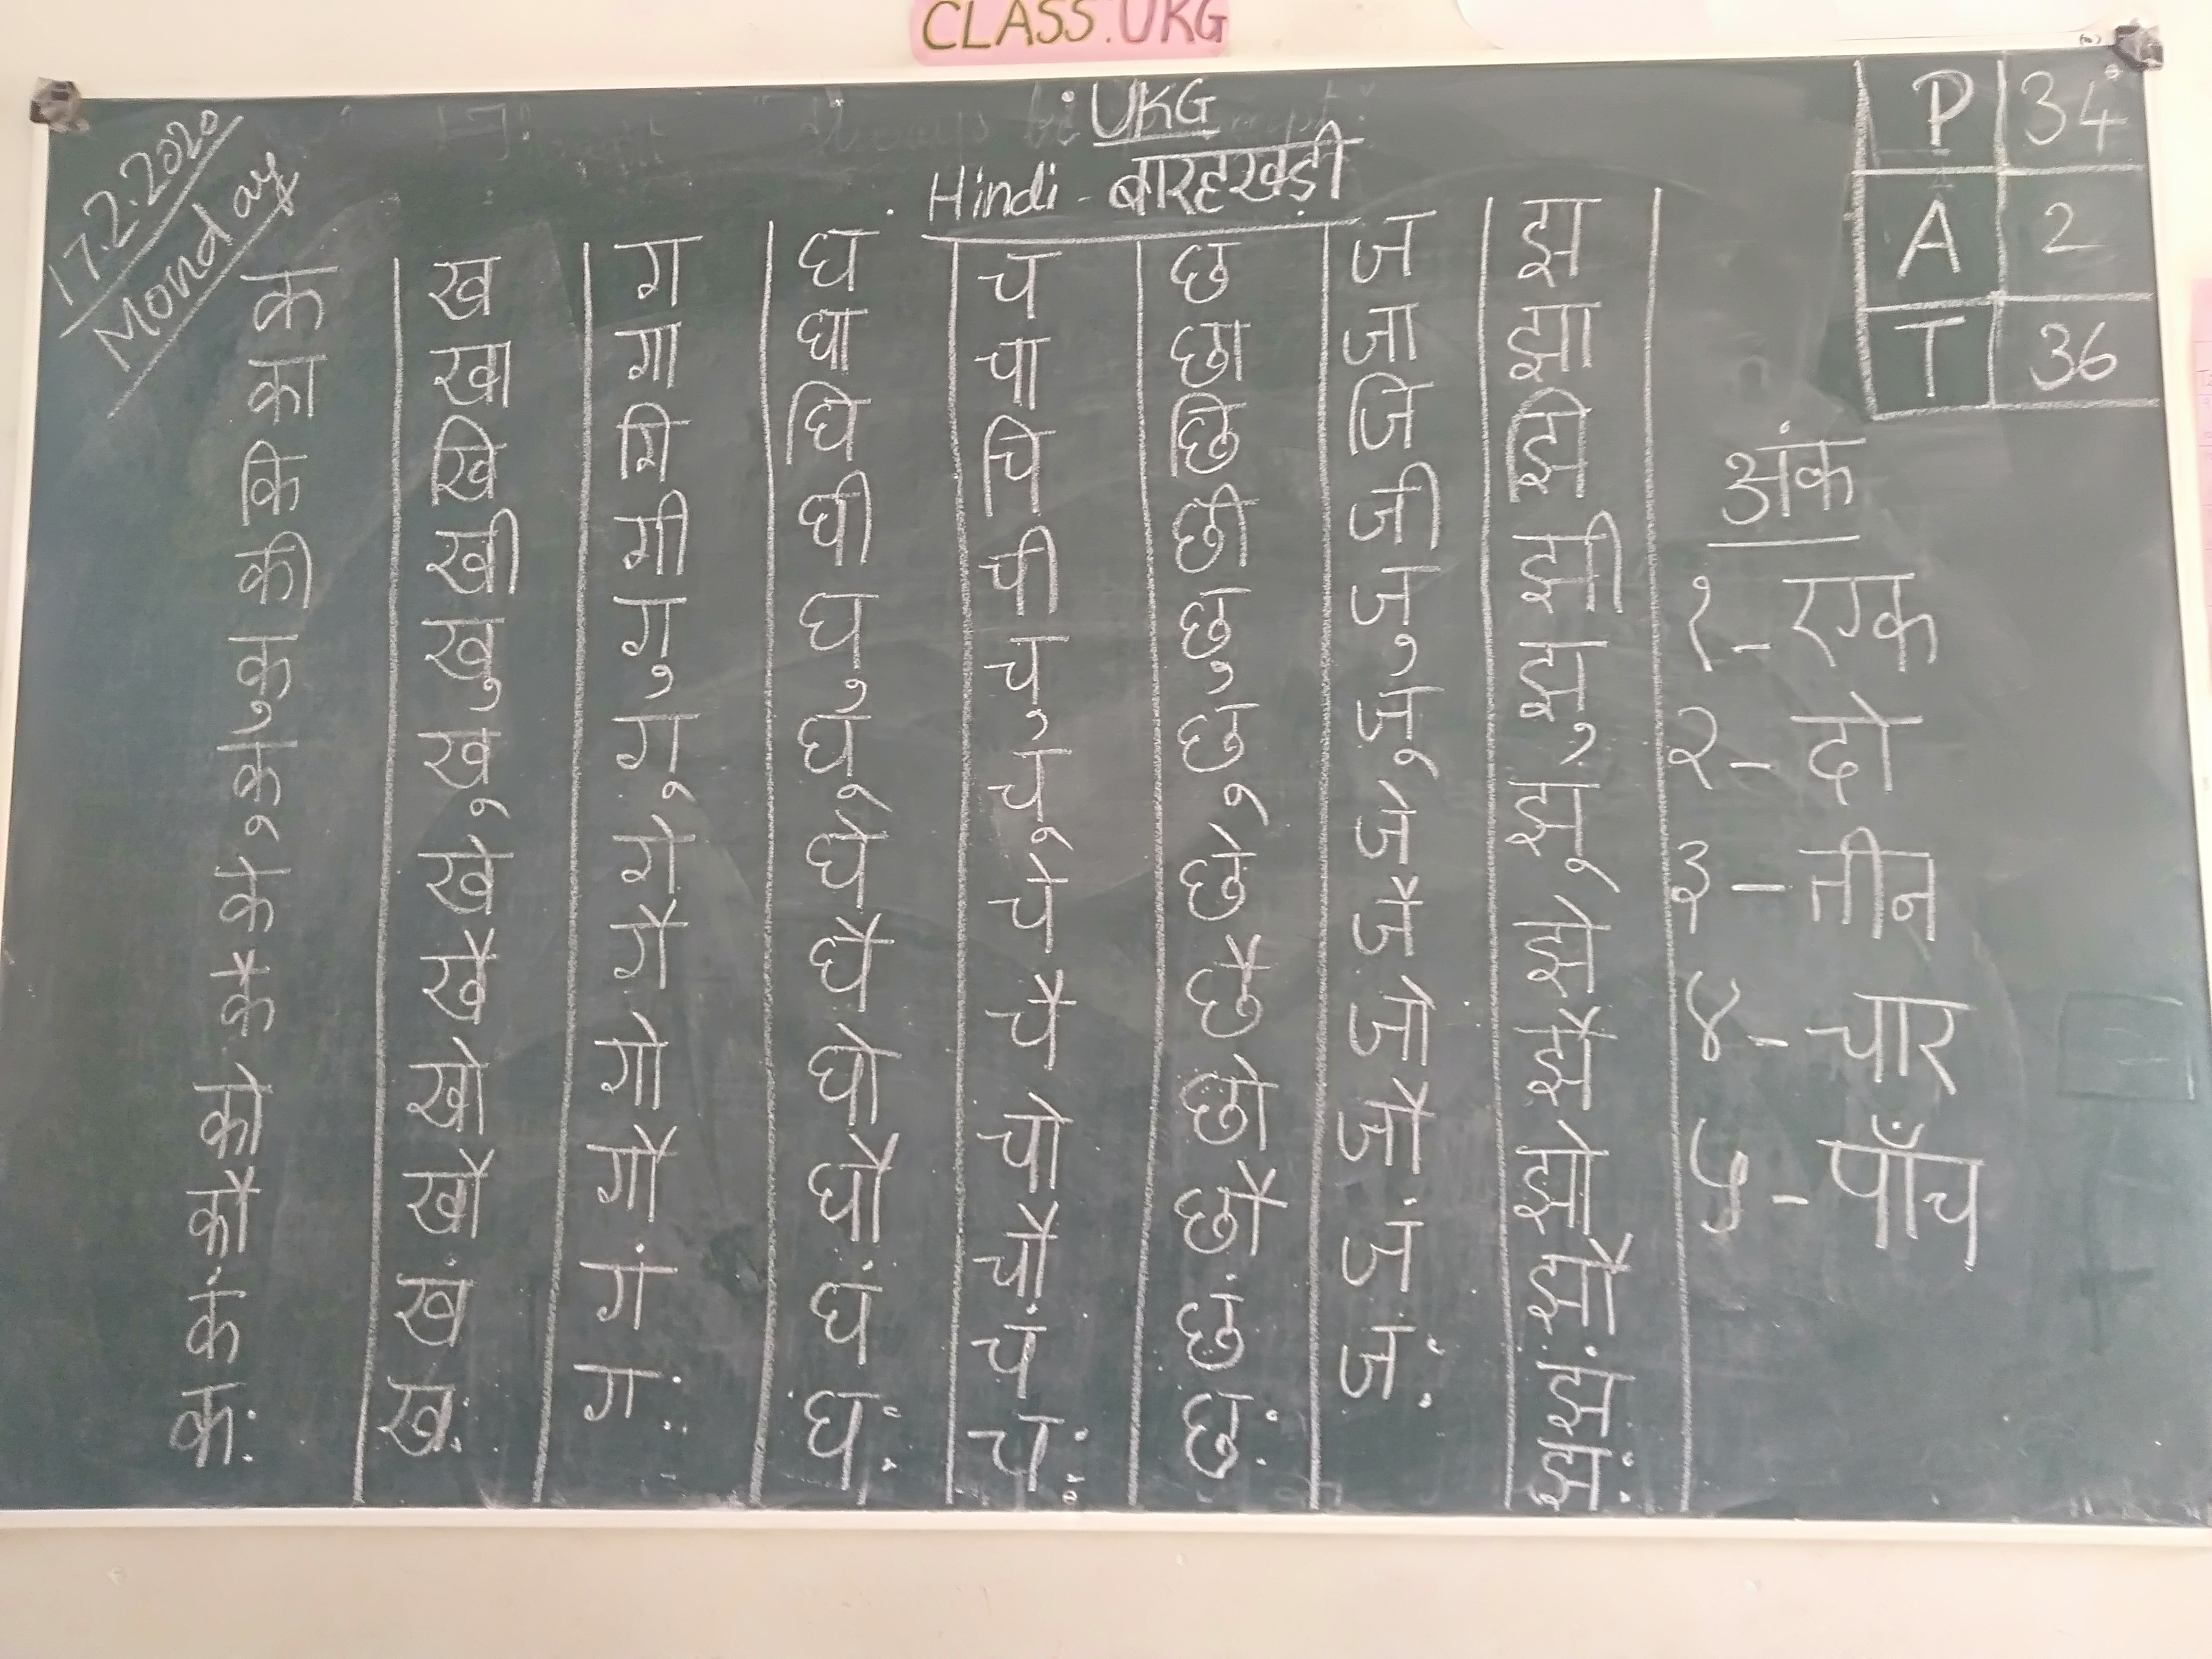 CLASS:UKG
17.2.2020
Monday
UKG
Hindi - बारहखड़ी
P 34
A 2
T 36
क ख ग घ च छ ज झ
का खा गा घा चा छा जा झा
कि खि गि घि चि छि जि झि
की खी गी घी ची छी जी झी
कु खु गु घु चु छु जु झु
कू खू गू घू चू छू जू झू
के खे गे घे चे छे जे झे
कै खै गै घै चै छै जै झै
को खो गो घो चो छो जो झो
कौ खौ गौ घौ चौ छौ जौ झौ
कं खं गं घं चं छं जं झं
कः खः गः घः चः छः जः झः
अंक
१ - एक
२ - दो
३ - तीन
४ - चार
५ - पाँच